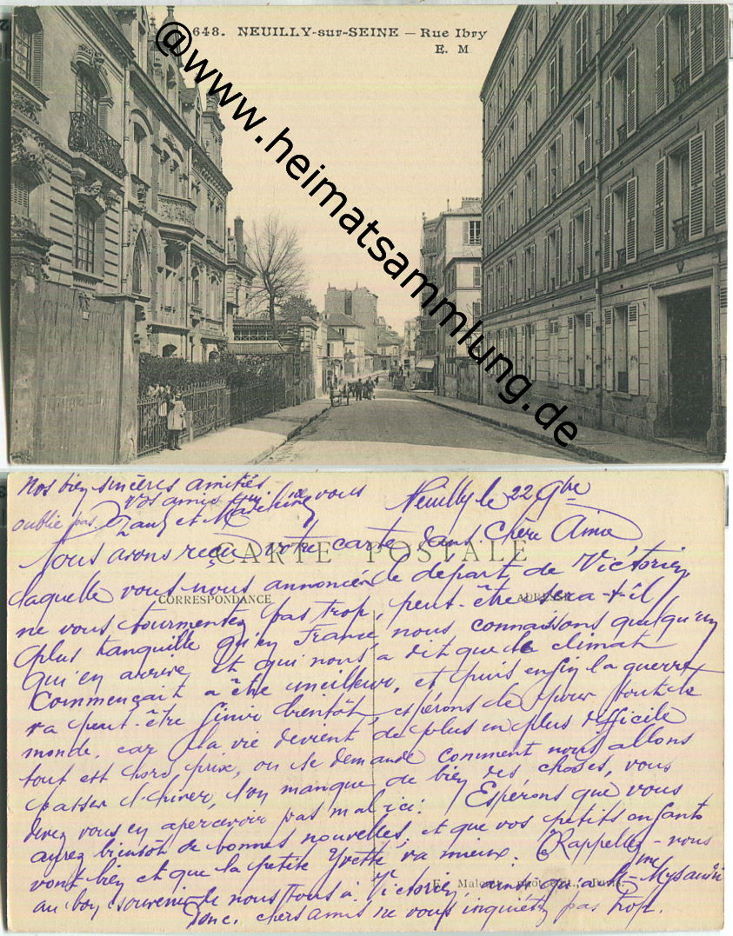 648. NEUILLY-sur-SEINE — Rue Ibry
E. M
@www.heimatsammlung.de
Nos bien sincères amitiés
vos amis qui vous
oublie pas et Madeleine
Neuilly le 22 9bre
CARTE POSTALE
CORRESPONDANCE
ADRESSE
Chère Amie
Nous avons reçu votre carte dans
laquelle vous nous annoncer le départ de Victorien
ne vous tourmentez pas trop, peut-être sera-t-il
plus tranquille qu'en France, nous connaissons quelqu'un
qui en arrive et qui nous a dit que le climat
commençait a être meilleur, et puis enfin la guerre
va peut-être finir bientôt, espérons le pour tout le
monde, car la vie devient de plus en plus difficile
tout est hors prix, on se demande comment nous allons
passer l'hiver, l'on manque de bien des choses, vous
devez vous en apercevoir pas mal ici. Espérons que vous
aurez bientôt de bonnes nouvelles, et que vos petits enfants
vont bien et que la petite Yvette va mieux. Rappellez-nous
au bon souvenir de nous tous à Victorien, ainsi qu'a Mme
Donc, chers amis ne vous inquiétez pas trop.